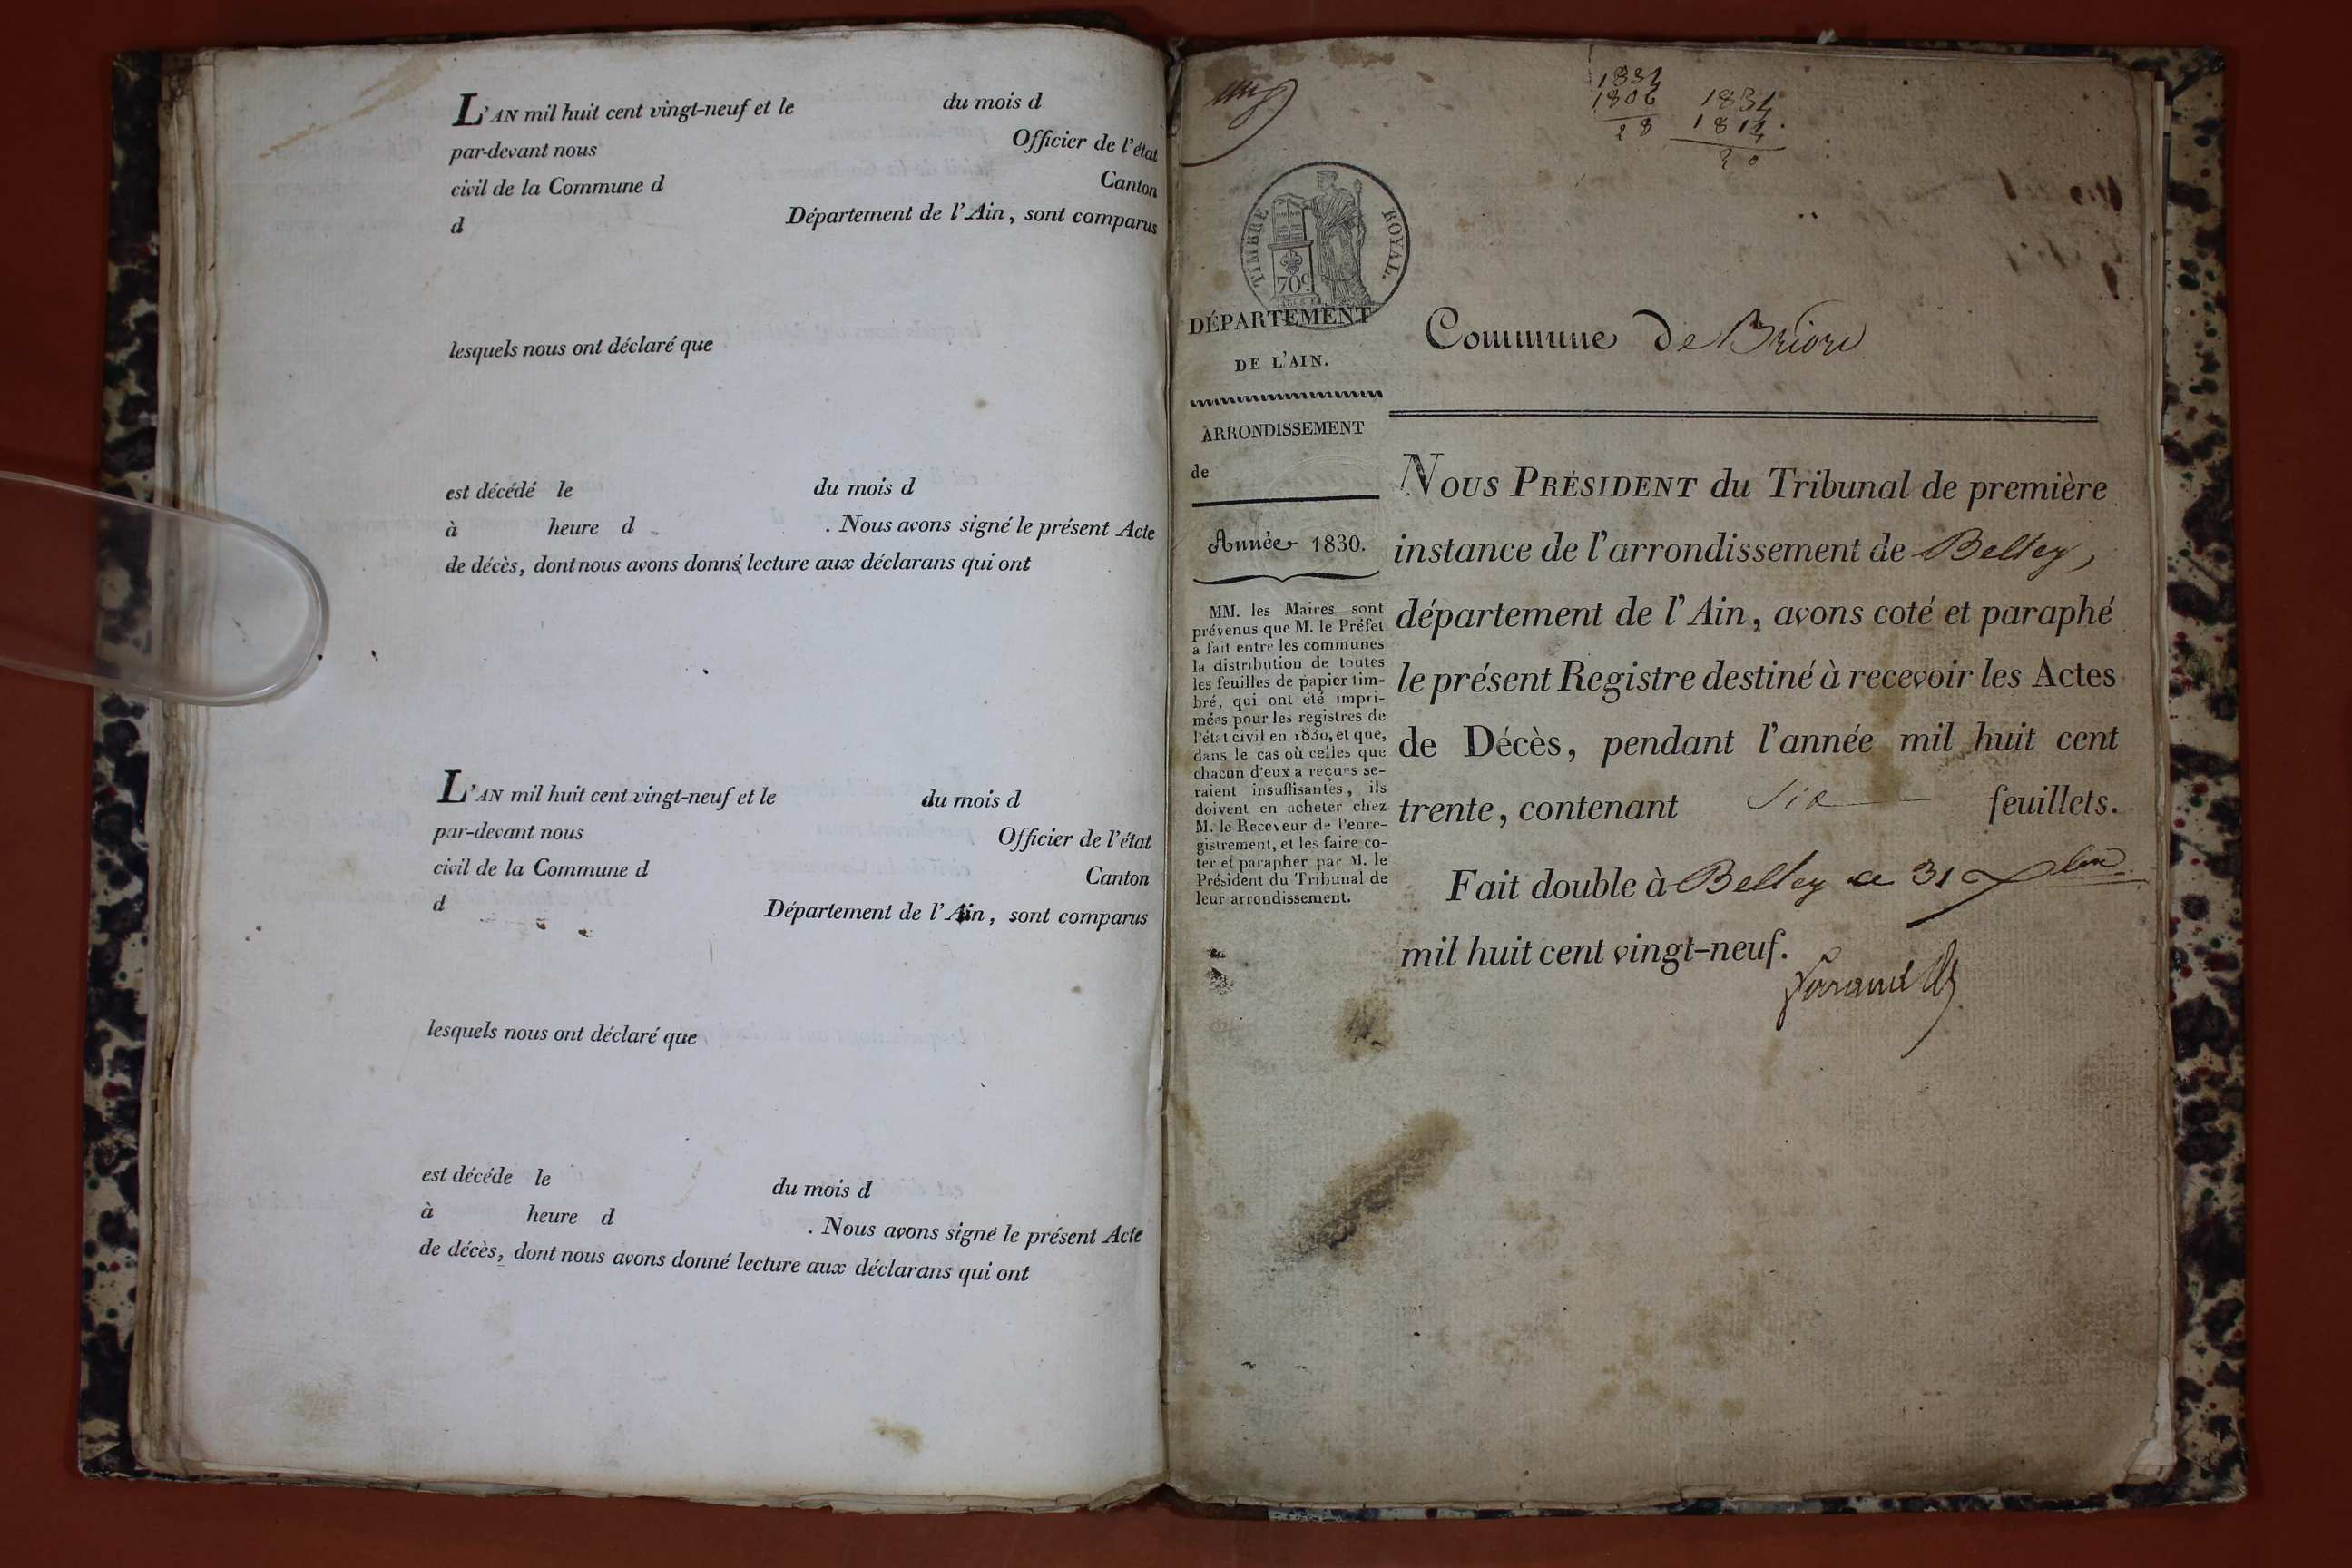 L'AN mil huit cent vingt-neuf et le du mois d
par-devant nous Officier de l'état
civil de la Commune d Canton
d Département de l'Ain, sont comparus
lesquels nous ont déclaré que
est décédé le du mois d
à heure d . Nous avons signé le présent Acte
de décès, dont nous avons donné lecture aux déclarans qui ont
L'AN mil huit cent vingt-neuf et le du mois d
par-devant nous Officier de l'état
civil de la Commune d Canton
d Département de l'Ain, sont comparus
lesquels nous ont déclaré que
est décéde le du mois d
à heure d . Nous avons signé le présent Acte
de décès, dont nous avons donné lecture aux déclarans qui ont
un
1834
1806
28
1834
1814
20
TIMBRE ROYAL.
70c
DÉPARTEMENT
DE L'AIN.
ARRONDISSEMENT
de
Année 1830.
MM. les Maires sont
prévenus que M. le Préfet
a fait entre les communes
la distribution de toutes
les feuilles de papier tim-
bré, qui ont été impri-
mées pour les registres de
l'état civil en 1830, et que,
dans le cas où celles que
chacun d'eux a reçues se-
raient insuffisantes, ils
doivent en acheter chez
M. le Receveur de l'enre-
gistrement, et les faire co-
ter et parapher par M. le
Président du Tribunal de
leur arrondissement.
Commune de Briord
NOUS PRÉSIDENT du Tribunal de première
instance de l'arrondissement de Belley,
département de l'Ain, avons coté et paraphé
le présent Registre destiné à recevoir les Actes
de Décès, pendant l'année mil huit cent
trente, contenant six feuillets.
Fait double à Belley ce 31 Xbre
mil huit cent vingt-neuf.